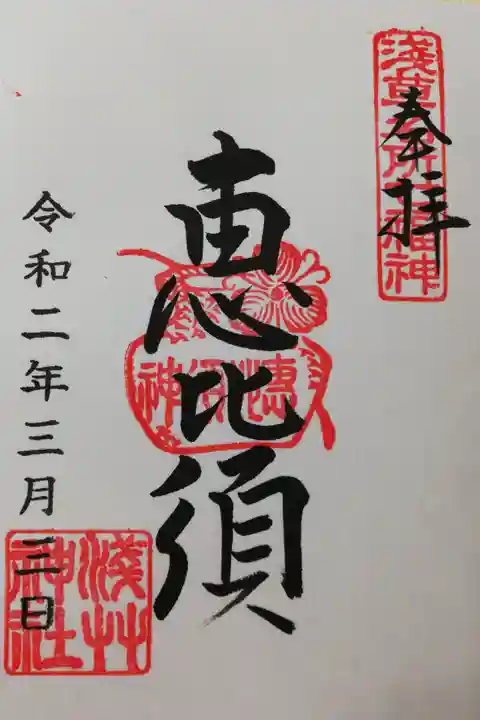 奉拝
淺草名所七福神
恵比須
惠須神
令和二年三月三日
淺草神社